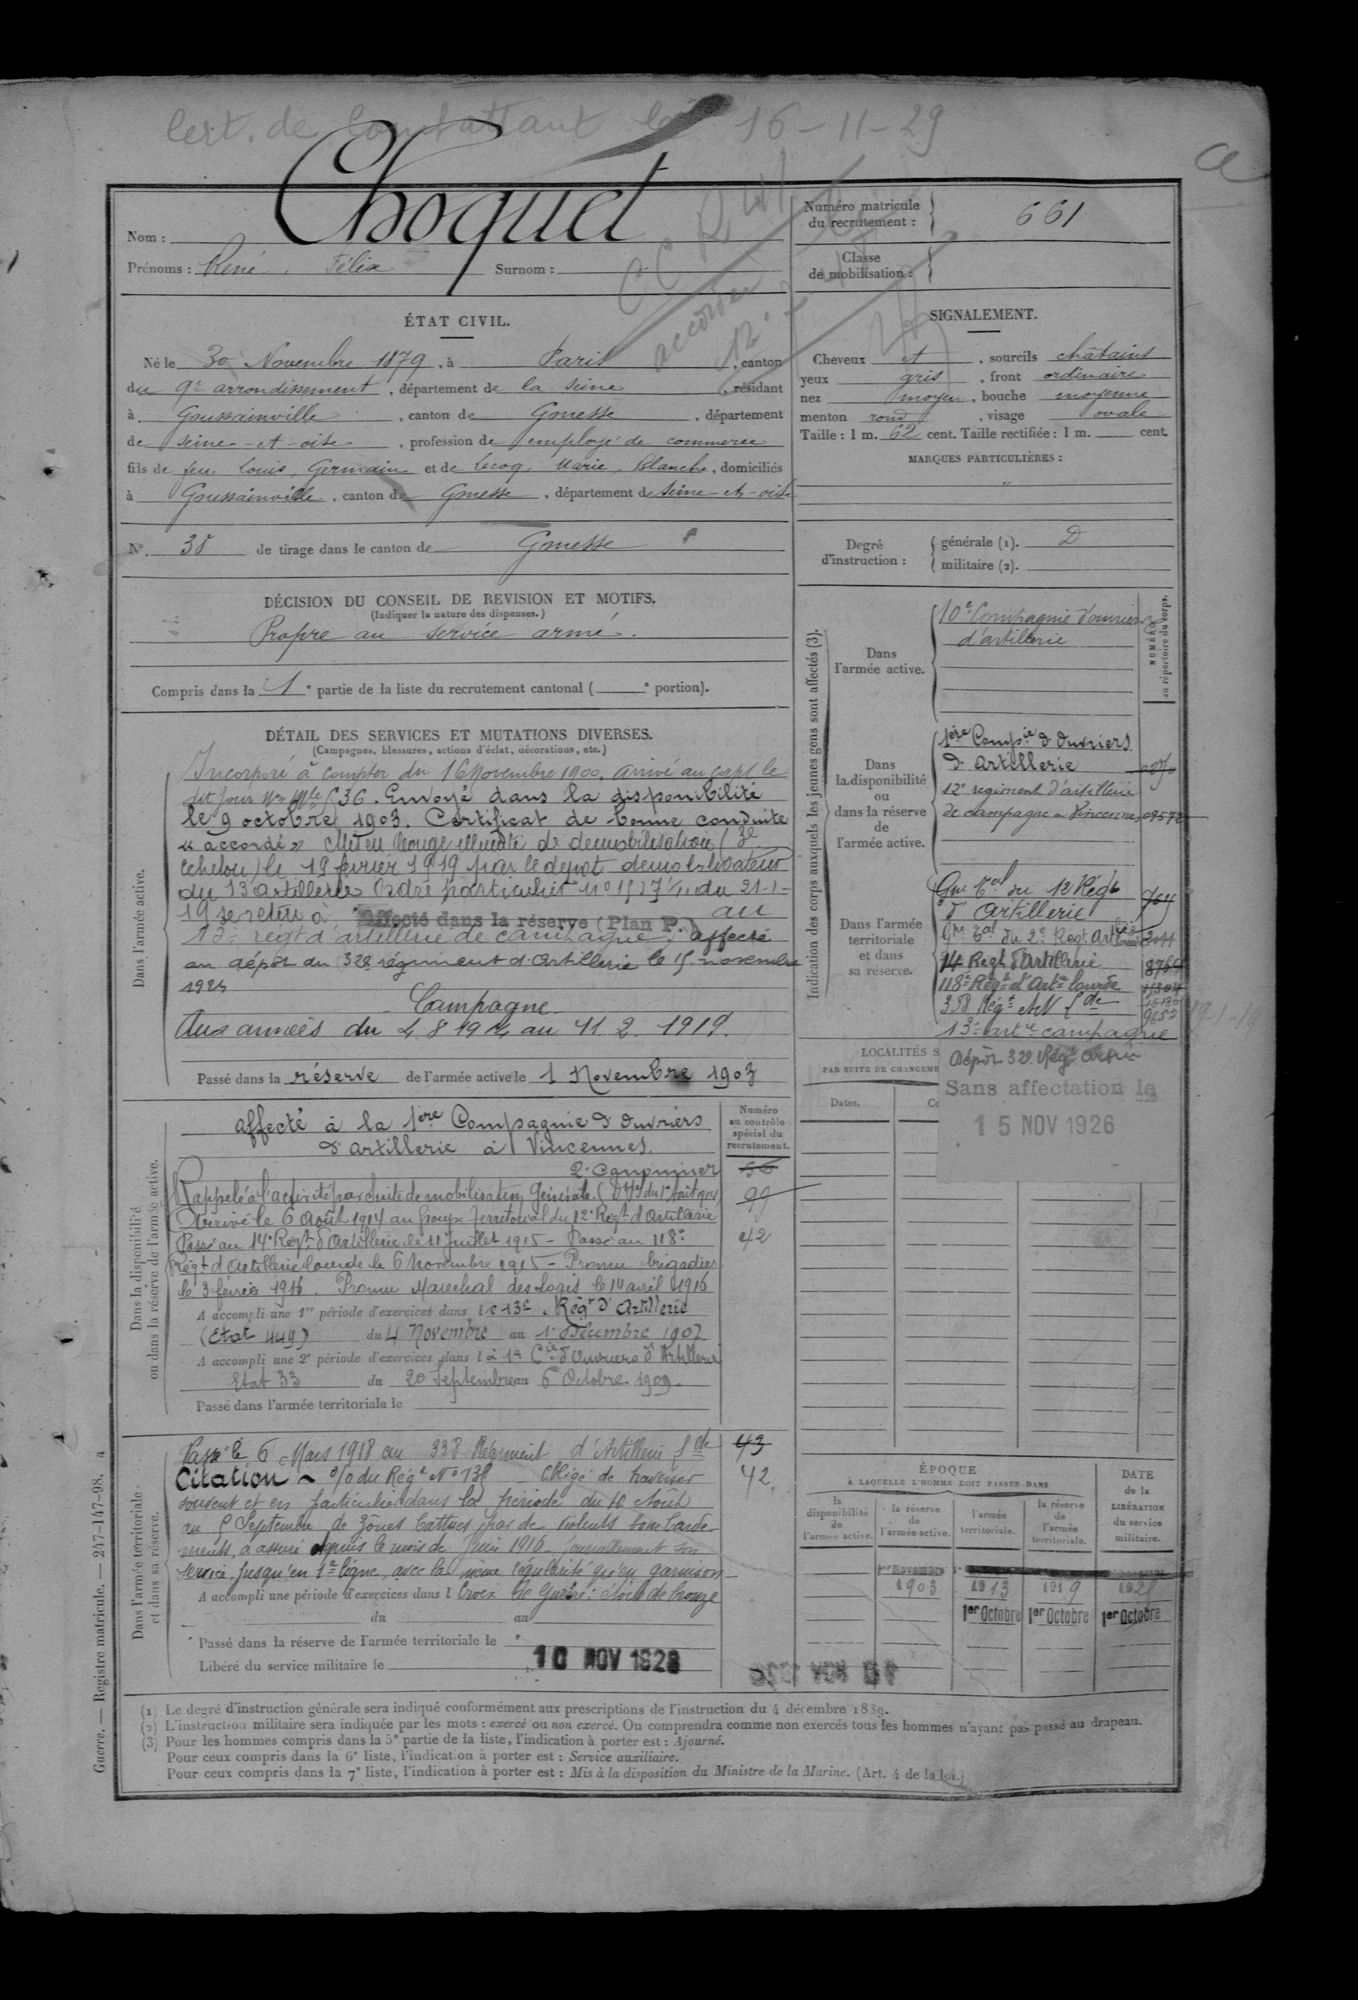 Cert. de Combattant le 16-11-29
Nom : Choquet
Prénoms : René, Félix Surnom :
Numéro matricule du recrutement : 661
Classe de mobilisation :
ÉTAT CIVIL.
Né le 30 Novembre 1879, à Paris, canton
du 9e arrondissement, département de la Seine, résidant
à Goussainville, canton de Gonesse, département
de Seine-et-Oise, profession de employé de commerce
fils de feu Louis, Germain et de Lecoq, Marie, Blanche, domiciliés
à Goussainville, canton de Gonesse, département de Seine-et-Oise
N° 38 de tirage dans le canton de Gonesse
SIGNALEMENT.
Cheveux et, sourcils châtains
yeux gris, front ordinaire
nez moyen, bouche moyenne
menton rond, visage ovale
Taille : 1 m. 62 cent. Taille rectifiée : 1 m. cent.
MARQUES PARTICULIÈRES :
"
Degré d'instruction : générale (1). D
militaire (2).
DÉCISION DU CONSEIL DE REVISION ET MOTIFS.
(Indiquer la nature des dispenses.)
Propre au service armé.
Compris dans la 1e partie de la liste du recrutement cantonal ( e portion).
DÉTAIL DES SERVICES ET MUTATIONS DIVERSES.
(Campagnes, blessures, actions d'éclat, décorations, etc.)
Dans l'armée active.
Incorporé à compter du 16 Novembre 1900. Arrivé au corps le
dit jour. No Mle 536. Envoyé dans la disponibilité
le 9 octobre 1903. Certificat de bonne conduite
"accordé" Mis en congé illimité de démobilisation (3e
échelon) le 19 février 1919 par le dépôt démobilisateur
du 13e artillerie Ordre particulier no 1527 du 21-1-
19 se retire à
Affecté dans la réserve (Plan P.) au
13e régt d'artillerie de campagne, affecté
au dépôt du 32e régiment d'Artillerie le 15 novembre
1924
Campagne
Aux armées du 4.8.1914 au 11.2.1919.
Passé dans la réserve de l'armée active le 1 Novembre 1903
Indication des corps auxquels les jeunes gens sont affectés (3).
NUMÉRO au répertoire du corps.
Dans l'armée active.
10e Compagnie d'ouvriers
d'artillerie
Dans la disponibilité ou dans la réserve de l'armée active.
1ère Compie d'Ouvriers
d'Artillerie
12e régiment d'artillerie
de campagne à Vincennes
Dans l'armée territoriale et dans sa réserve.
Gpe Tal du 12 Régt
d'Artillerie
Gpe Tal du 2e Régt Artie
14 Régt d'Artillerie
118e Régt d'Artie lourde
338 Régt Art Lde
13e artie campagne
Dépôt 32e Régt Art
Sans affectation le
15 NOV 1926
LOCALITÉS S
PAR SUITE DE CHANGEME
Dates.
Dans la disponibilité ou dans la réserve de l'armée active.
Numéro au contrôle spécial du recrutement.
Affecté à la 1ère Compagnie d'Ouvriers
d'Artillerie à Vincennes.
2e Canonnier
Rappelé à l'activité par suite de mobilisation Générale.
Arrivé le 6 Août 1914 au Groupe Territorial du 12e Régt d'Artillerie
Passé au 14e Régt d'Artillerie le 11 Juillet 1915 - Passé au 118e
Régt d'Artillerie lourde le 6 Novembre 1915 - Promu brigadier
le 3 février 1916. Promu Maréchal des Logis le 14 avril 1916
56
99
42
A accompli une 1re période d'exercices dans le 13e Régt d'Artillerie
(Etat 449) du 4 Novembre au 1er Décembre 1907
A accompli une 2e période d'exercices dans la 1e Cie d'Ouvriers d'Artillerie
Etat 33 du 20 Septembre au 6 Octobre 1909
Passé dans l'armée territoriale le
Dans l'armée territoriale et dans sa réserve.
Passé le 6 Mars 1918 au 338 Régiment d'Artillerie Lde
43
Citation - O/o du Régt No 138 - Obligé de traverser
42
souvent et en particulier dans la période du 10 Août
au 5 Septembre de zônes battues par de violents bombarde-
ments, a assuré depuis le mois de Juin 1916 journellement son
service jusqu'en 1e ligne, avec la même régularité qu'en garnison -
A accompli une période d'exercices dans l Croix de Guerre : étoile de bronze
du au
Passé dans la réserve de l'armée territoriale le "
Libéré du service militaire le 10 NOV 1928
ÉPOQUE
À LAQUELLE L'HOMME DOIT PASSER DANS
la disponibilité de l'armée active.
la réserve de l'armée active.
l'armée territoriale.
la réserve de l'armée territoriale.
DATE de la LIBÉRATION du service militaire.
1er Novembre
1903 1913 1919 1925
1er Octobre 1er Octobre 1er Octobre
(1) Le degré d'instruction générale sera indiqué conformément aux prescriptions de l'instruction du 4 décembre 1889.
(2) L'instruction militaire sera indiquée par les mots : exercé ou non exercé. On comprendra comme non exercés tous les hommes n'ayant pas passé au drapeau.
(3) Pour les hommes compris dans la 5e partie de la liste, l'indication à porter est : Ajourné.
Pour ceux compris dans la 6e liste, l'indication à porter est : Service auxiliaire.
Pour ceux compris dans la 7e liste, l'indication à porter est : Mis à la disposition du Ministre de la Marine. (Art. 4 de la loi.)
Guerre. — Registre matricule. — 247-147-98. 4